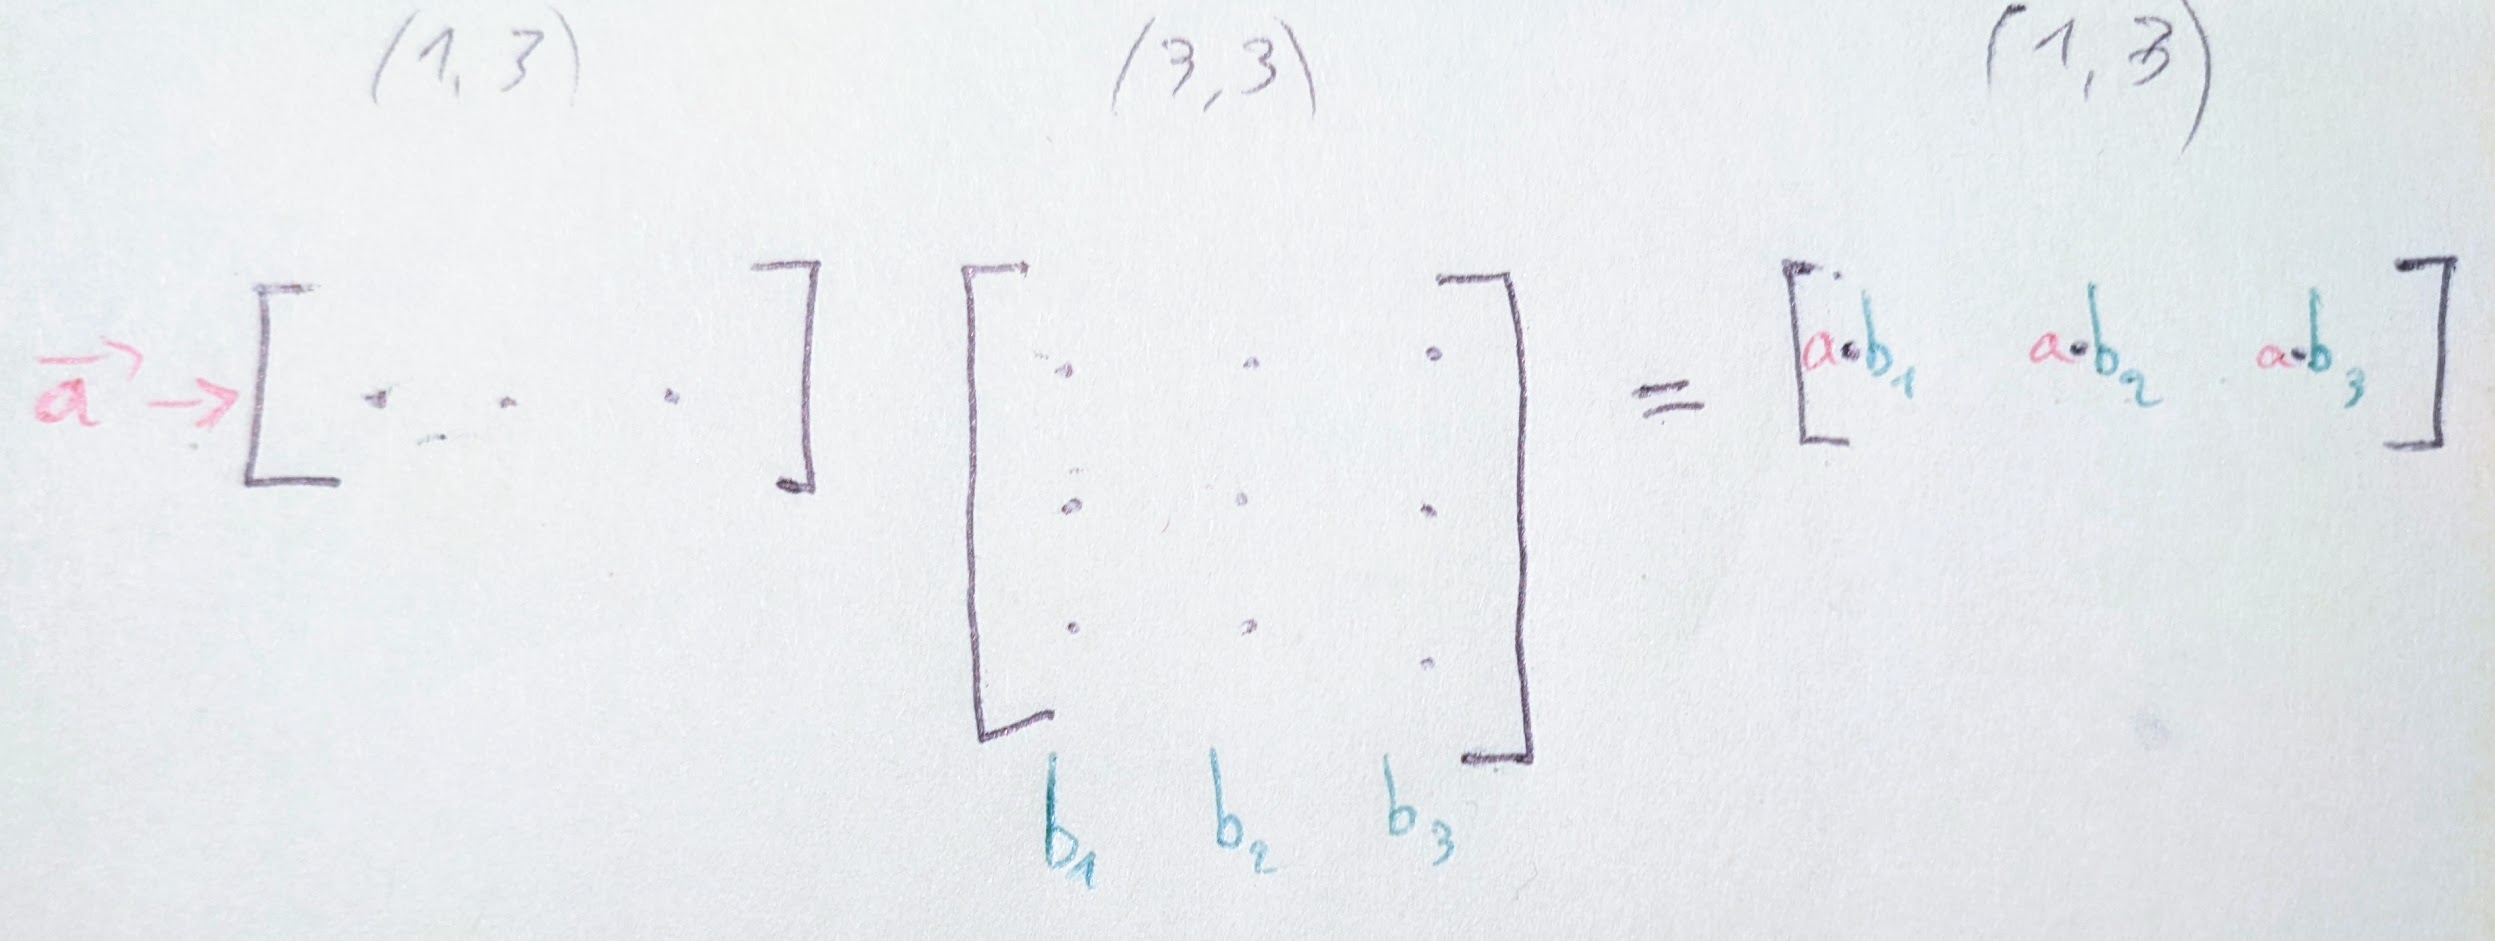 (1,3) (3,3) (1,3)
a → [ . . . ] [ . . . = [ a·b₁ a·b₂ a·b₃ ]
. . .
. . . ]
b₁ b₂ b₃